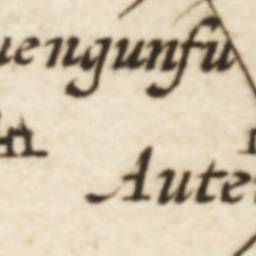 uengunfu
Aute